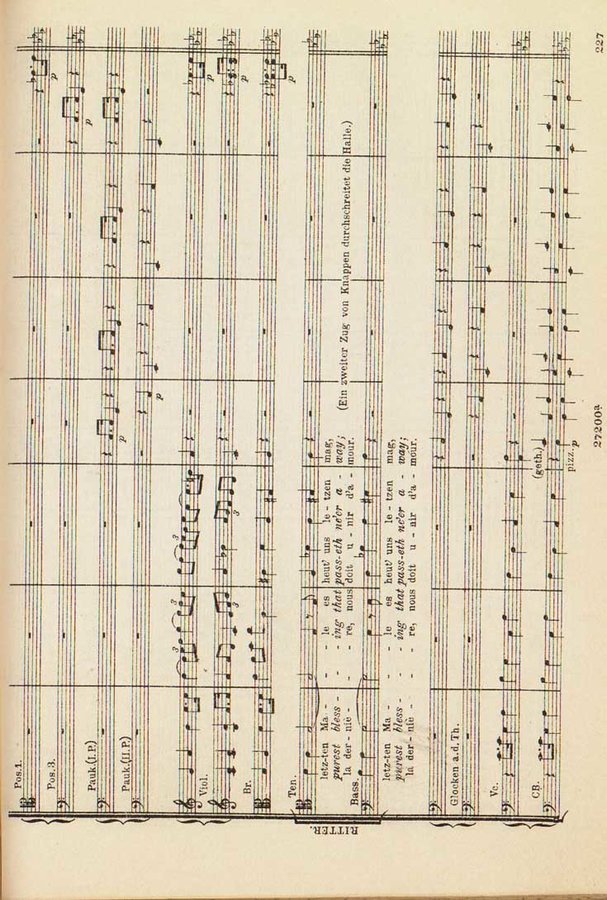 227
Pos. 1.
Pos. 3.
p
Pauk. (I. P.)
p
p
Pauk. (II. P.)
p
Viol.
3
3
3
p
3
3
p
Br.
p
RITTER.
Ten.
letz-ten Ma - - - le es heut' uns le - tzen mag,
purest bless - - - ing that pass-eth ne'er a - way;
la der - niè - - - re, nous doit u - nir d'a - mour.
(Ein zweiter Zug von Knappen durchschreitet die Halle.)
Bass.
letz-ten Ma - - - le es heut' uns le - tzen mag,
purest bless - - - ing that pass-eth ne'er a - way;
la der - niè - - - re, nous doit u - nir d'a - mour.
Glocken a. d. Th.
Vc.
(geth.)
CB.
pizz. p
27200a